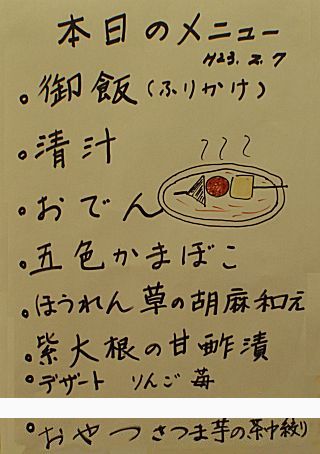 本日のメニュー
H23.2.7
。御飯(ふりかけ)
。清汁
。おでん
。五色かまぼこ
。ほうれん草の胡麻和え
。紫大根の甘酢漬
。デザート りんご 苺
。おやつ さつま芋の茶巾絞り